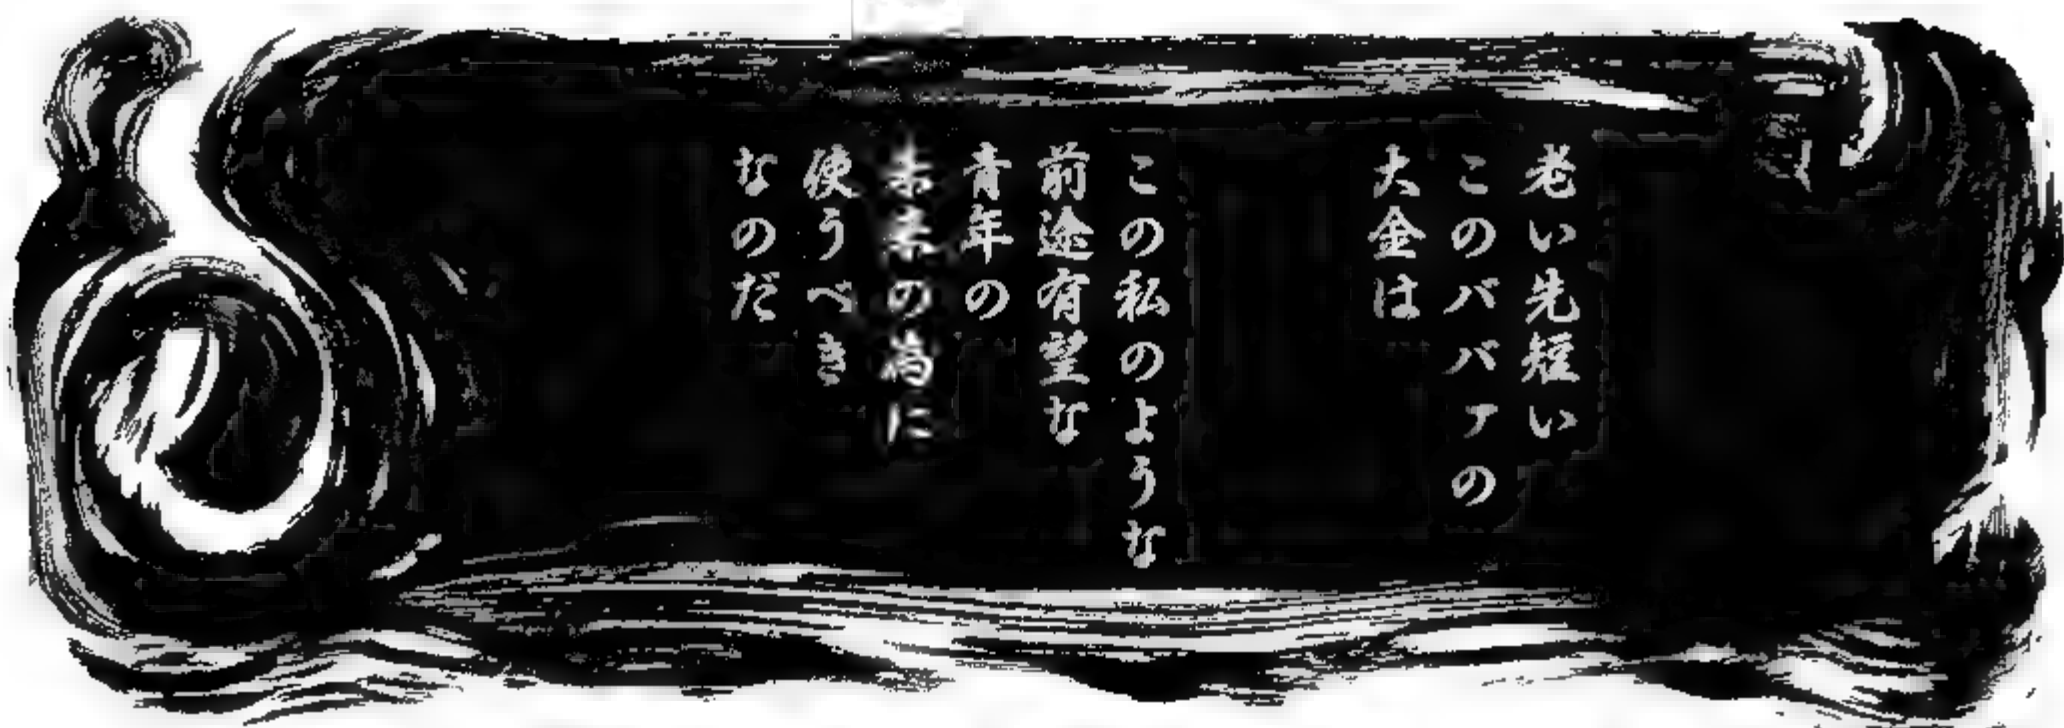 老い先短い
このババァの
大金は
この私のような
前途有望な
青年の
未来の為に
使うべき
なのだ